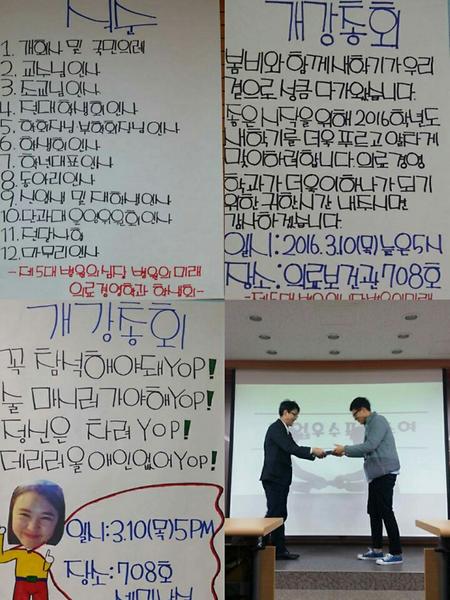 식순
1. 개회사 및 국민의례
2. 교수님인사
3. 조교님인사
4. 전대학생회인사
5. 학회장님 부학회장님인사
6. 학생회인사
7. 학년대표인사
8. 동아리인사
9. 신입생 및 재학생인사
10. 단과대 운영위원회인사
11. 전달사항
12. 마무리인사
-제5대 병원의 심장 병원의 미래
의료경영학과 학생회-
개강총회
봄비와 함께 새학기가 우리
곁으로 성큼 다가왔습니다.
좋은 시작을 위해 2016학년도
새학기를 더욱 푸르고 알차게
맞이하려합니다. 의료경영
학과가 더욱이 하나가 되기
위한 귀한시간 내주시면
감사하겠습니다.
일시:2016.3.10(목)늦은5시
장소:의료보건관708호
-제5대 병원의 심장 병원의 미래
개강총회
꼭 참석해야돼YOP!
술 마시러가야해YOP!
정신은 차려YOP!
데리러올애인없어YOP!
일시:3.10(목)5PM
장소:708호
세미나실